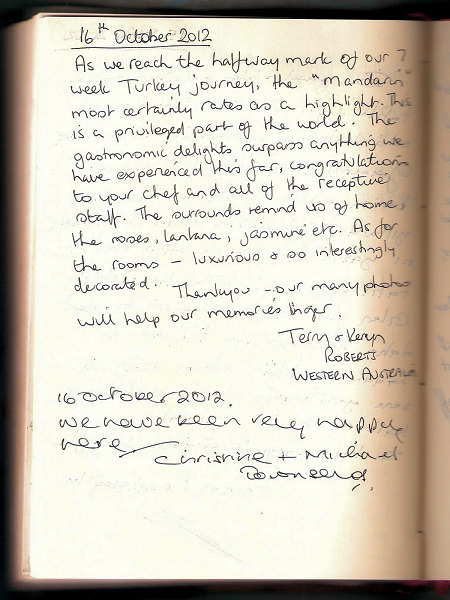 16th October 2012
As we reach the halfway mark of our 7
week Turkey journey, the "Mandarin"
most certainly rates as a highlight. This
is a privileged part of the world. The
gastronomic delights surpass anything we
have experienced thus far, congratulations
to your chef and all of the receptive
staff. The surrounds remind us of home,
the roses, lantana, jasmine etc. As for
the rooms – luxurious & so interestingly
decorated. Thankyou – our many photos
will help our memories linger.
Terry & Keryn
ROBERTS
WESTERN AUSTRALIA
16 October 2012.
We have been very happy
here
Christine + Michael